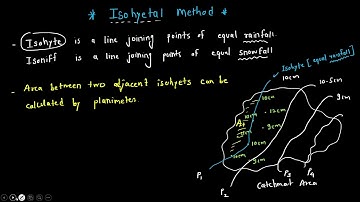 * Isohyetal Method *
- Isohyte is a line joining points of equal rainfall.
Isoniff is a line joining points of equal snowfall
- Area between two adjacent isohyets can be
calculated by planimeter.
Isohyte [equal rainfall]
10cm
10.5cm
9cm
10cm
12cm
9cm
10cm
10cm
9cm
P1
P2
P3
P4
Catchmat Area